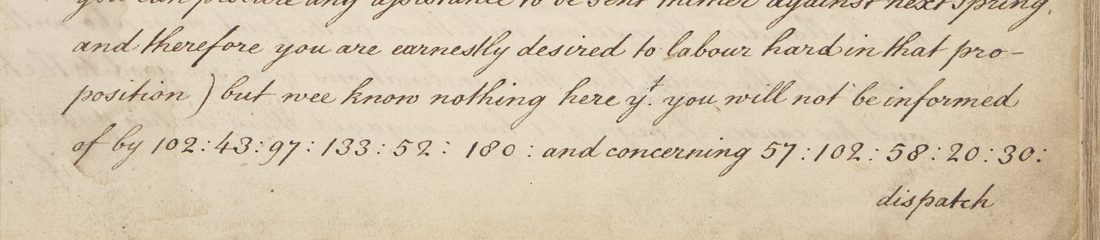 you can procure any assistance to be sent thither against next spring,
and therefore you are earnestly desired to labour hard in that pro-
position ) but wee know nothing here yt. you will not be informed
of by 102: 43: 97: 133: 52: 180: and concerning 57: 102: 58: 20: 30:
dispatch